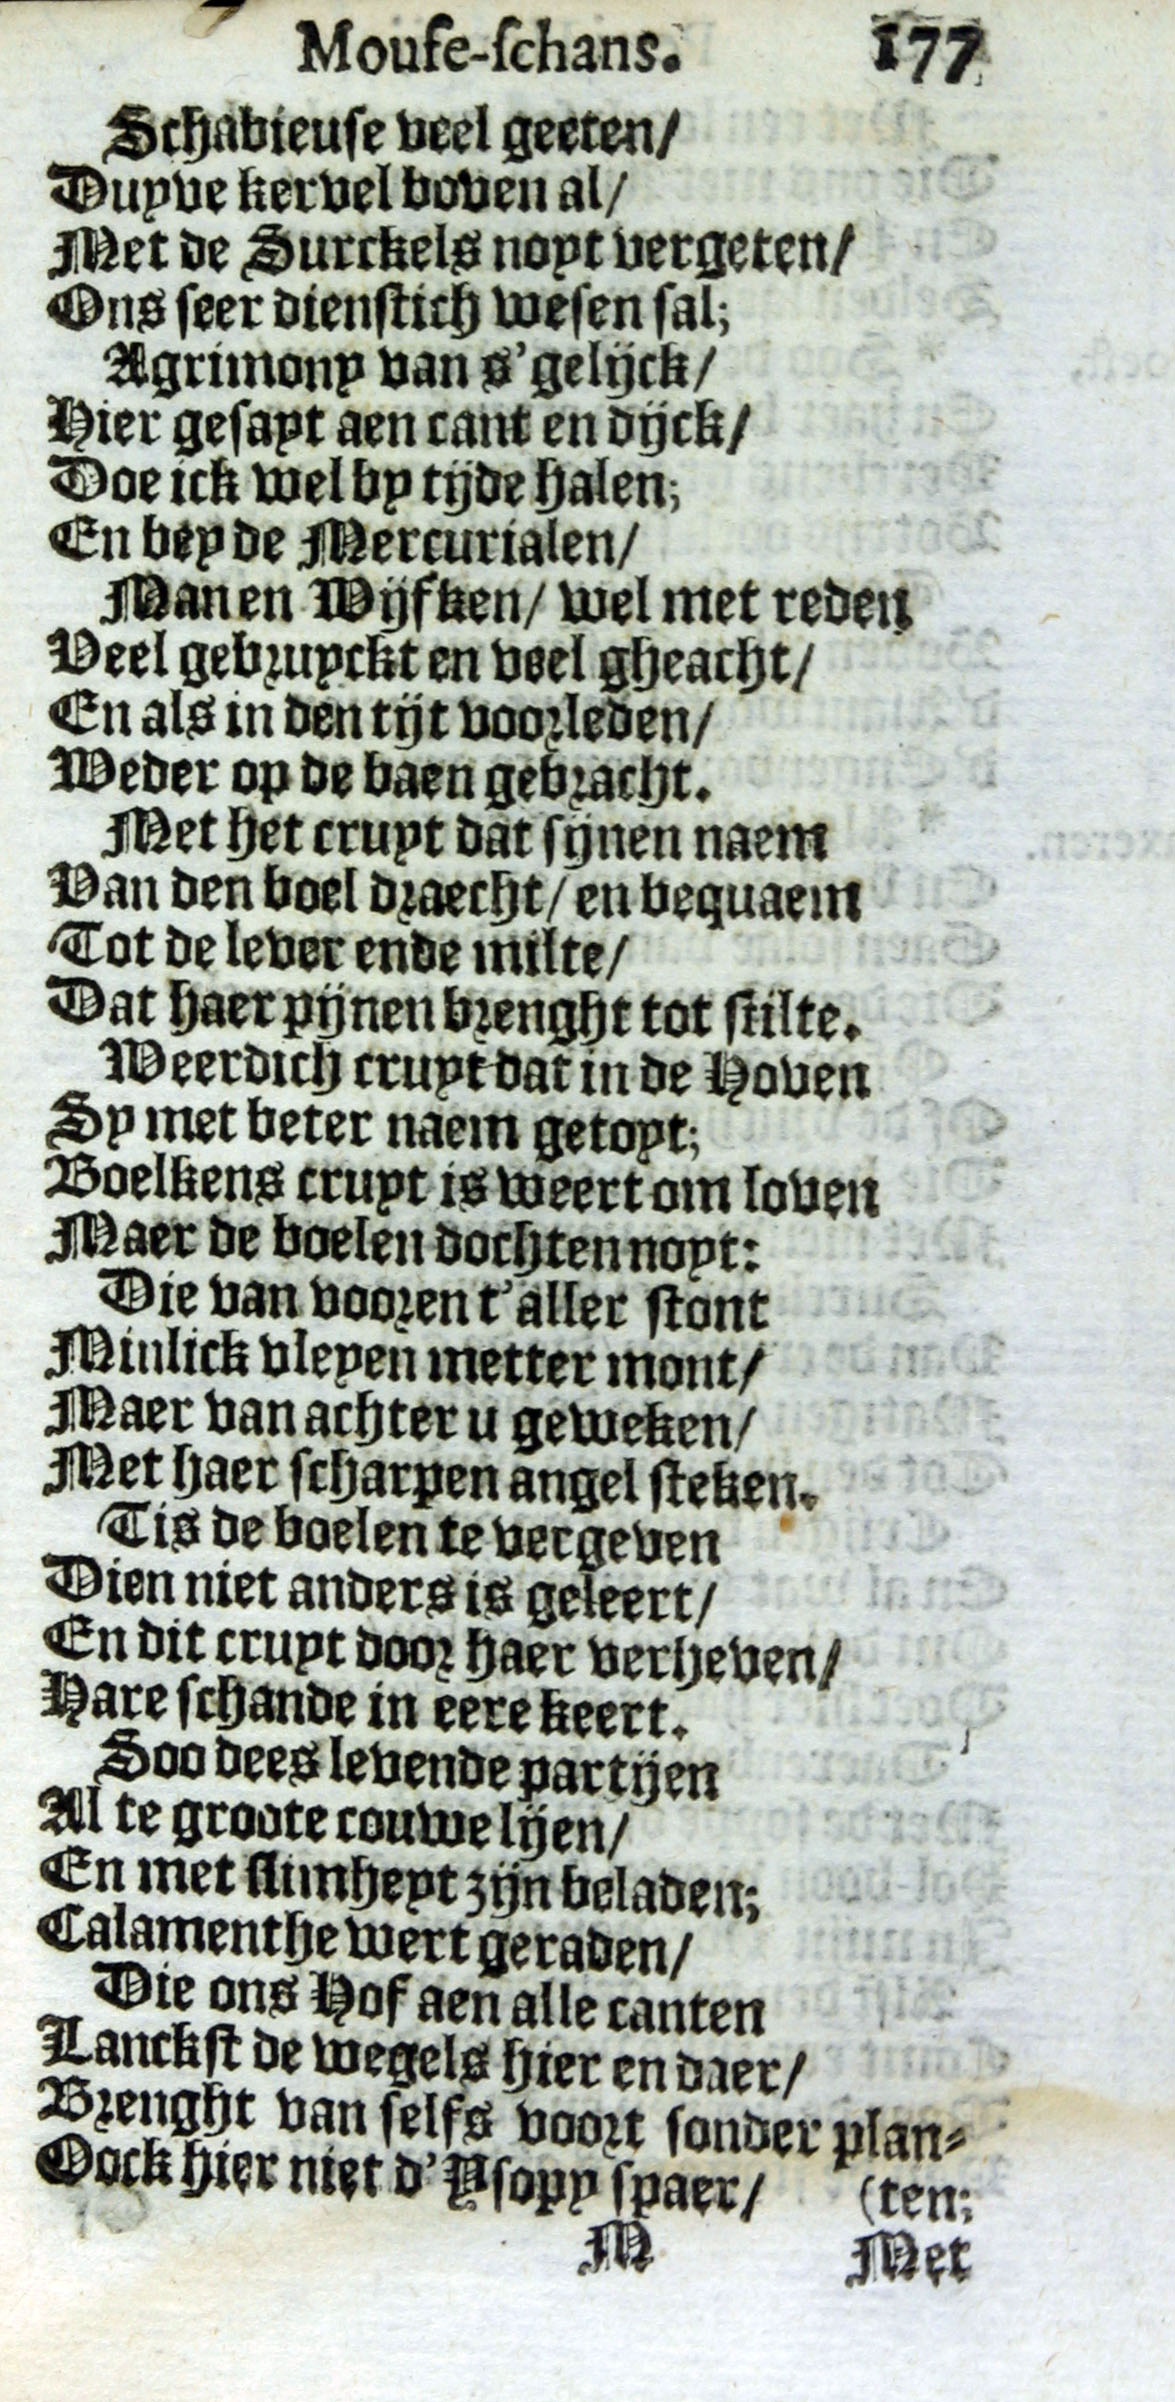 Mouſe-ſchans. 177
Schabieuſe veel geeten/
Duyve kervel boven al/
Met de Surckels noyt vergeten/
Ons ſeer dienſtich weſen ſal;
Agrimony van s'gelijck/
Hier geſayt aen cant en dijck/
Doe ick wel by tijde halen;
En beyde Mercurialen/
Man en Wijfken/ wel met reden
Veel gebruyckt en veel gheacht/
En als in den tijt voorleden/
Weder op de baen gebracht.
Met het cruyt dat ſijnen naem
Van den boel draecht/ en bequaem
Tot de lever ende milte/
Dat haer pijnen brenght tot ſtilte.
Weerdich cruyt dat in de Hoven
Sy met beter naem getoyt;
Boelkens cruyt is weert om loven
Maer de boelen dochten noyt:
Die van vooren t'aller ſtont
Minlick vleyen metter mont/
Maer van achter u geweken/
Met haer ſcharpen angel ſteken.
Tis de boelen te vergeven
Dien niet anders is geleert/
En dit cruyt door haer verheven/
Hare ſchande in eere keert.
Soo dees levende partijen
Al te groote couwe lijen/
En met ſlimheyt zijn beladen;
Calamenthe wert geraden/
Die ons Hof aen alle canten
Lanckſt de wegels hier en daer/
Brenght van ſelfs voort ſonder plan-
Oock hier niet d'Yſopy ſpaer/ (ten;
M Met